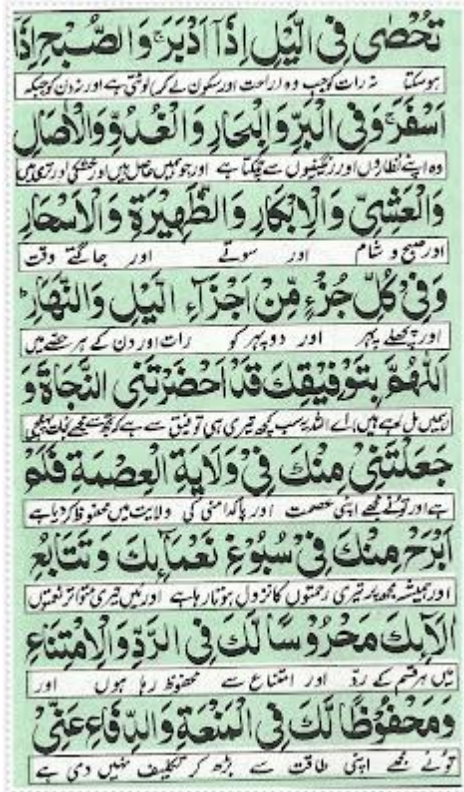 تُحْصٰى فِى الَّيْلِ اِذَآ اَدْبَرَ وَالصُّبْحِ اِذَآ
ہوسکتا نہ رات کو جب وہ راحت اور سکون لے کر لوٹتی ہے اور نہ دن کو جبکہ
اَسْفَرَ وَفِى الْبَرِّ وَالْبِحَارِ وَالْغُدُوِّ وَالْاٰصَالِ
وہ اپنے نظاروں اور رنگینیوں سے چمکتا ہے اور جو ہمیں حاصل ہیں اور خشکی اور تری میں
وَالْعَشِىِّ وَالْاِبْكَارِ وَالظَّهِيْرَةِ وَالْاَسْحَارِ
اور صبح و شام اور سوتے اور جاگتے وقت
وَفِىْ كُلِّ جُزْءٍ مِّنْ اَجْزَآءِ الَّيْلِ وَالنَّهَارِ
اور پچھلے پہر اور دوپہر کو رات اور دن کے ہر حصّے میں
اَللّٰهُمَّ بِتَوْفِيْقِكَ قَدْ اَحْضَرْتَنِى النَّجَاةَ وَ
ہمیں مل رہے ہیں اے اللہ یہ سب کچھ تیری ہی توفیق سے ہے کہ تجھ سے مجھے نجات پہنچی
جَعَلْتَنِىْ مِنْكَ فِىْ وَلَايَةِ الْعِصْمَةِ فَلَمْ
ہے اور تونے مجھے اپنی عصمت اور پاکدامنی کی ولایت میں محفوظ کر دیا ہے
اَبْرَحْ مِنْكَ فِىْ سُبُوْغِ نَعْمَآئِكَ وَ تَتَابُعِ
اور ہمیشہ مجھ پر تیری رحمتوں کا نزول ہوتا رہا ہے اور میں تیری متواتر نعمتیں
اٰلَآئِكَ مَحْرُوْسًا لَّكَ فِى الرَّدِّ وَالْاِمْتِنَاعِ
میں ہر قسم کے ردّ اور امتناع سے محفوظ رہا ہوں اور
وَمَحْفُوْظًا لَّكَ فِى الْمَنْعَةِ وَالدِّفَاعِ عَنِّىْ
تونے مجھے اپنی طاقت سے بڑھ کر تکلیف نہیں دی ہے